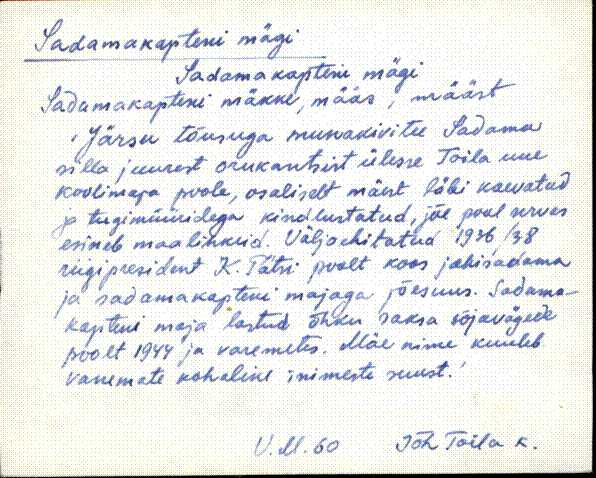 Sadamakapteni mägi
Sadamakapteni mägi
Sadamakapteni mäkke, määs, määst
"Järsu tõusuga munakivitee Sadama
silla juurest orukantsist ülesse Toila uue
koolimaja poole, osaliselt mäest läbi kaevatud
ja tugimüüridega kindlustatud, jõe pool servas
esineb maalihkeid. Väljaehitatud 1936/38
riigipresident K. Pätsi poolt koos jahisadama
ja sadamakapteni majaga jõesuus. Sadama-
kapteni maja lastud õhku saksa sõjavägede
poolt 1944 ja varemetes. Mäe nime kuuleb
vanemate kohalike inimeste suust."
V.M. 60 Jõh Toila k.